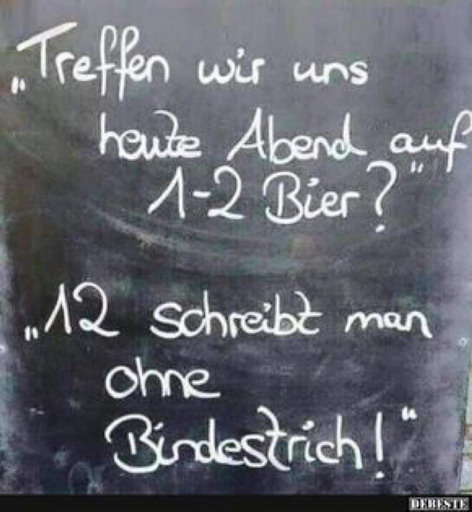 „Treffen wir uns
heute Abend auf
1-2 Bier?"
„12 schreibt man
ohne
Bindestrich!"
DEBESTE